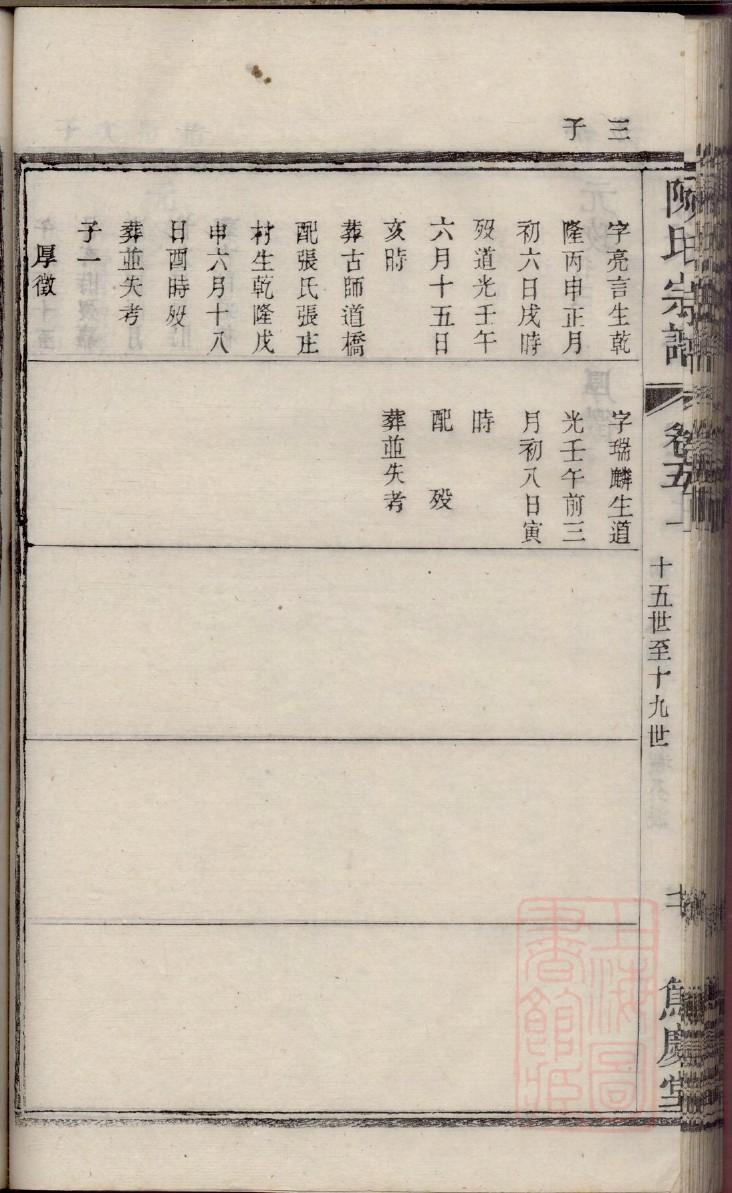 三子
字亮言生乾
隆丙申正月
初六日戌時
歿道光壬午
六月十五日
亥時
葬古師道橋
配張氏張庄
村生乾隆戊
申六月十八
日酉時歿
葬並失考
子一
厚徵
字瑞麟生道
光壬午前三
月初八日寅
時
配 歿
葬並失考
陳氏宗譜
卷五
十五世至十九世
慶堂
上海圖書館藏